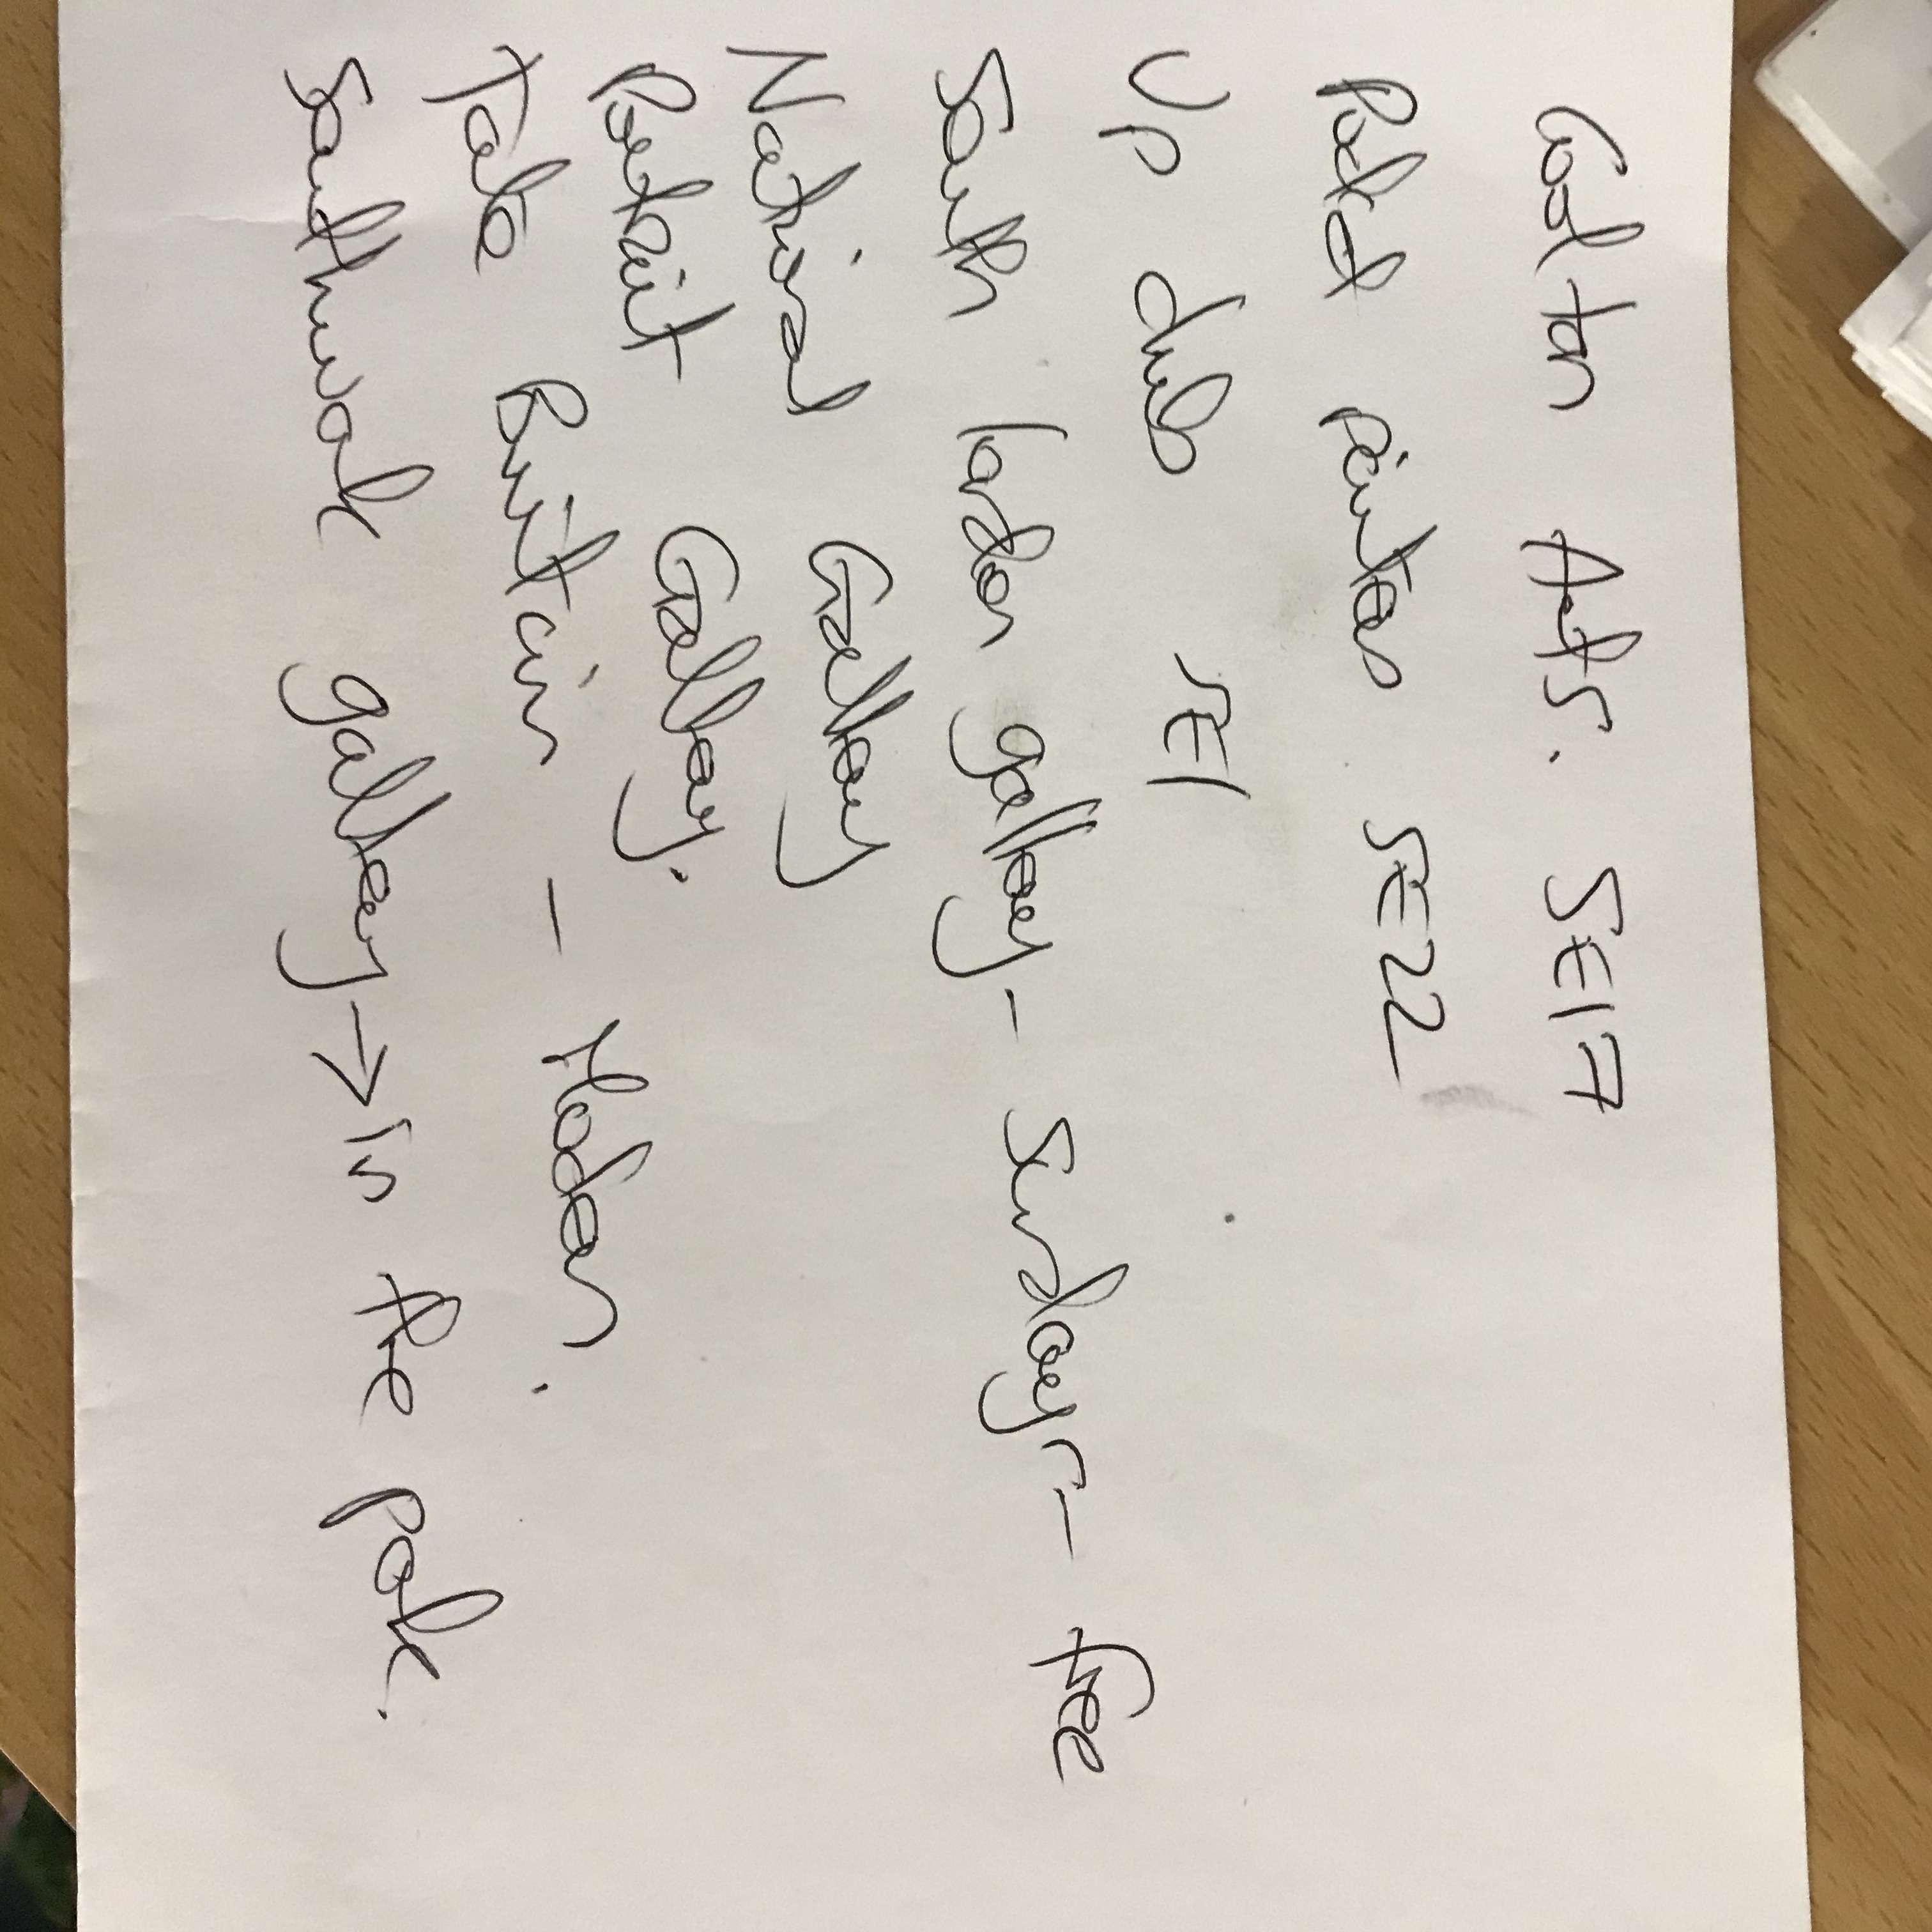 Coolton Arts. SE17
Pocket painters SE22
Up clubs SE1
South london gallery - Sundays - free
National Gallery
Portrait Gallery.
Tate Britain - Modern.
Southwark gallery → in the park.